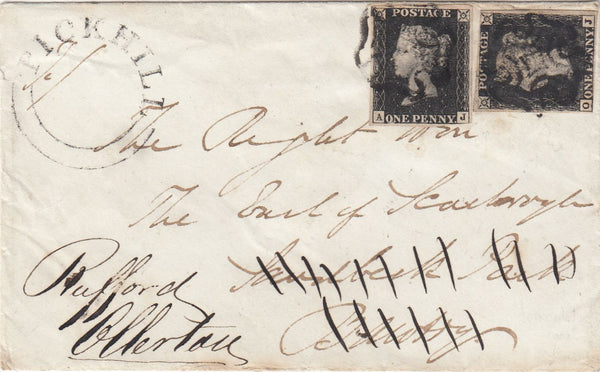 PICKHILL
POSTAGE
A ONE PENNY J
POSTAGE
O ONE PENNY J
The Right Hon
The Earl of Scarbrough
Sandbeck Park
Bawtry
Rufford
Ollerton